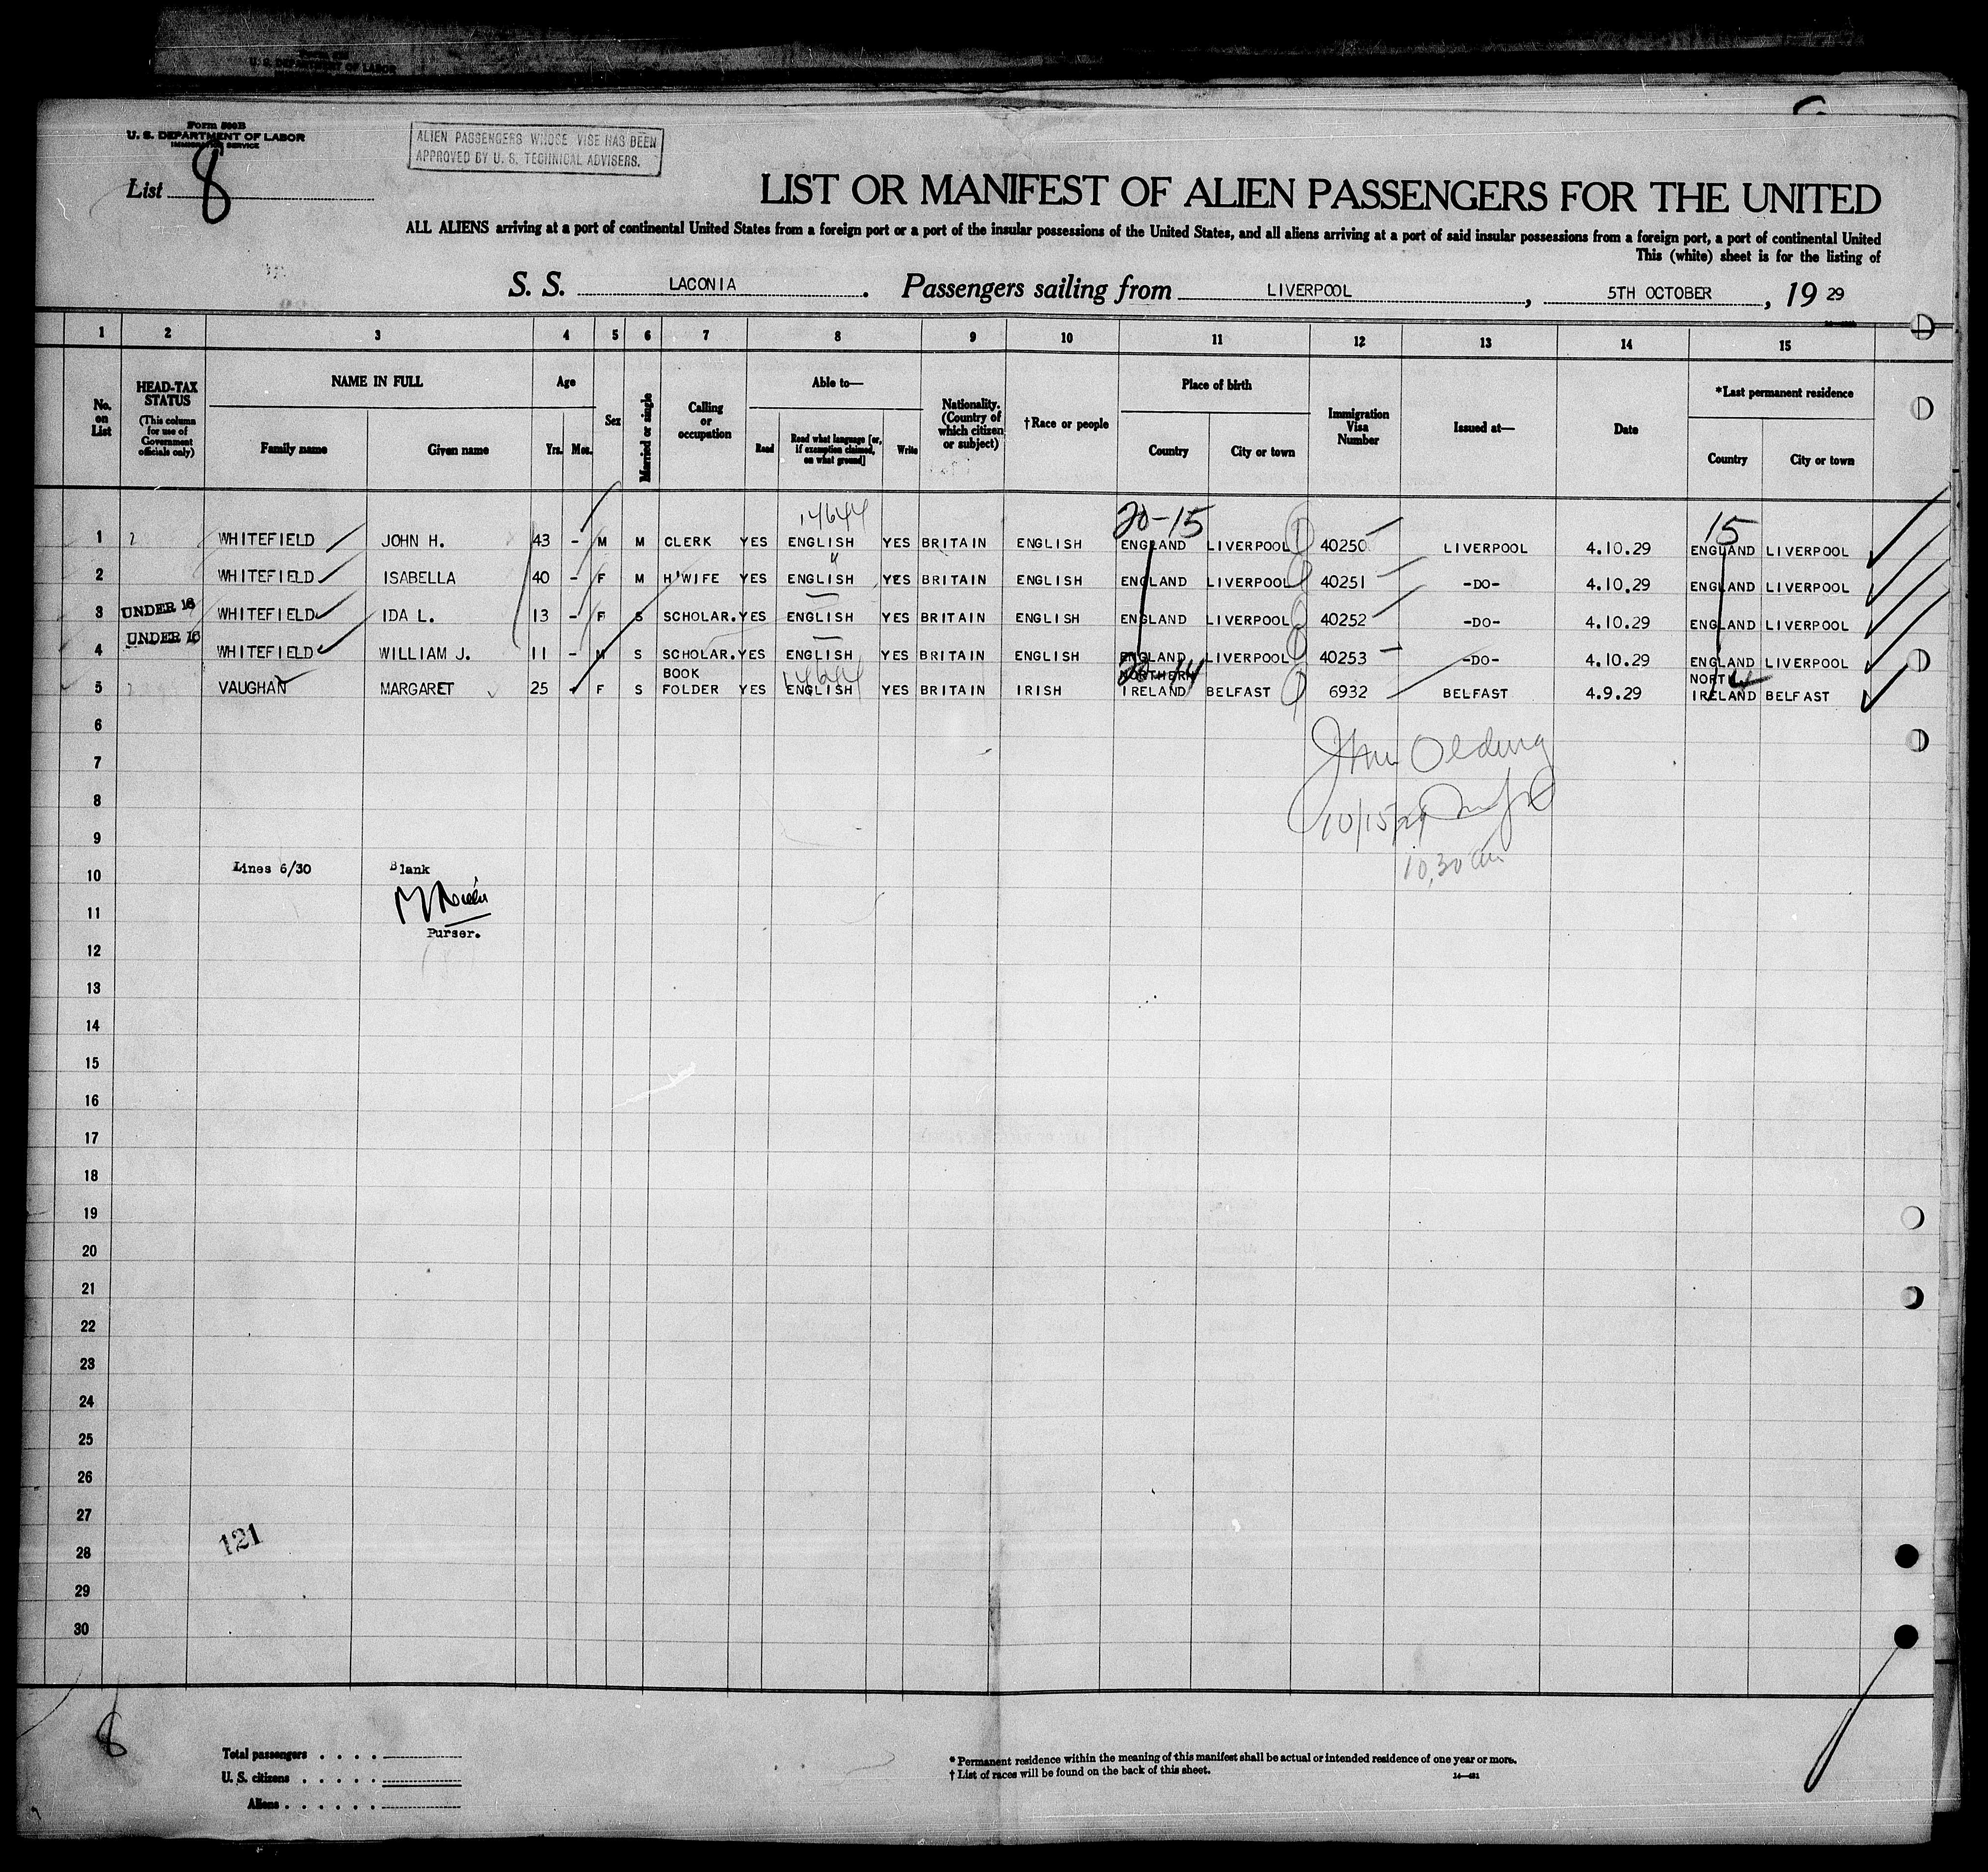 Form 500B
U. S. DEPARTMENT OF LABOR
IMMIGRATION SERVICE
ALIEN PASSENGERS WHOSE VISE HAS BEEN
APPROVED BY U. S. TECHNICAL ADVISERS.
List 8
LIST OR MANIFEST OF ALIEN PASSENGERS FOR THE UNITED
ALL ALIENS arriving at a port of continental United States from a foreign port or a port of the insular possessions of the United States, and all aliens arriving at a port of said insular possessions from a foreign port, a port of continental United
This (white) sheet is for the listing of
S. S. LACONIA. Passengers sailing from LIVERPOOL, 5TH OCTOBER, 19 29
1 2 3 4 5 6 7 8 9 10 11 12 13 14 15
No. on List
HEAD-TAX STATUS
(This column for use of Government officials only)
NAME IN FULL
Family name Given name
Age
Yrs. Mos.
Sex
Married or single
Calling or occupation
Able to—
Read
Read what language [or, if exemption claimed, on what ground]
Write
Nationality. (Country of which citizen or subject)
†Race or people
Place of birth
Country City or town
Immigration Visa Number
Issued at—
Date
*Last permanent residence
Country City or town
14644 20-15 15
1 WHITEFIELD JOHN H. 43 - M M CLERK YES ENGLISH YES BRITAIN ENGLISH ENGLAND LIVERPOOL 40250 LIVERPOOL 4.10.29 ENGLAND LIVERPOOL
2 WHITEFIELD ISABELLA 40 - F M H'WIFE YES ENGLISH YES BRITAIN ENGLISH ENGLAND LIVERPOOL 40251 -DO- 4.10.29 ENGLAND LIVERPOOL
3 UNDER 16 WHITEFIELD IDA L. 13 - F S SCHOLAR. YES ENGLISH YES BRITAIN ENGLISH ENGLAND LIVERPOOL 40252 -DO- 4.10.29 ENGLAND LIVERPOOL
4 UNDER 16 WHITEFIELD WILLIAM J. 11 - M S SCHOLAR. YES ENGLISH YES BRITAIN ENGLISH ENGLAND LIVERPOOL 40253 -DO- 4.10.29 ENGLAND LIVERPOOL
BOOK 14644 NORTHERN 20-14 NORTH
5 VAUGHAN MARGARET 25 - F S FOLDER YES ENGLISH YES BRITAIN IRISH IRELAND BELFAST 6932 BELFAST 4.9.29 IRELAND BELFAST
6
John Olding
7
8
10/15/29
9
10.30 am
Lines 6/30 Blank
10
11
Purser.
12
13
14
15
16
17
18
19
20
21
22
23
24
25
26
27
121
28
29
30
8
Total passengers
U. S. citizens
Aliens
* Permanent residence within the meaning of this manifest shall be actual or intended residence of one year or more.
† List of races will be found on the back of this sheet.
14—481